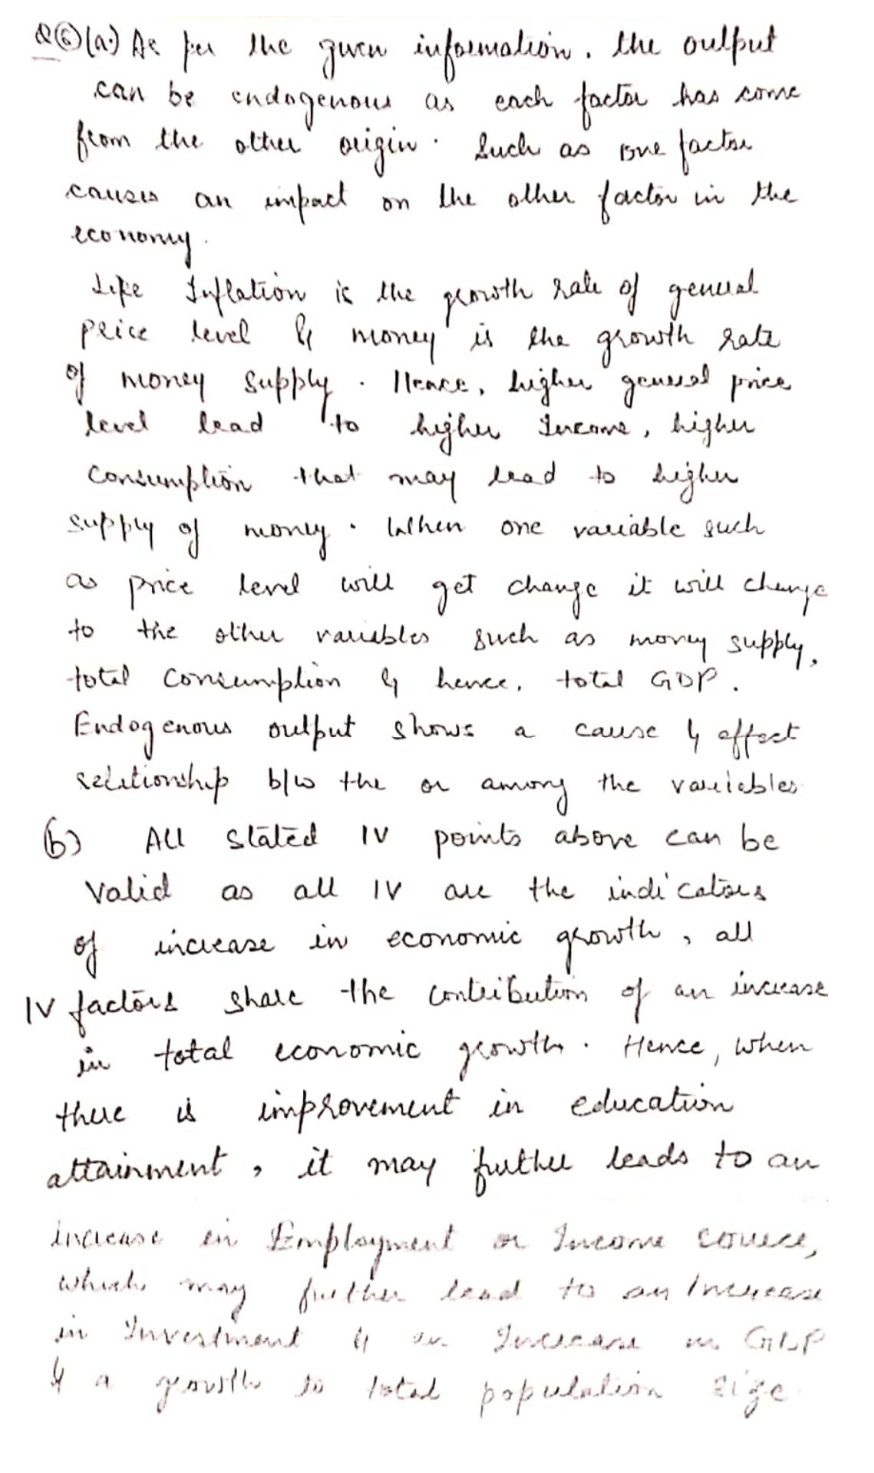 Q⑥(a.) As per the given information, the output
can be endogenous as each factor has some
from the other origin. Such as one factor
causes an impact on the other factor in the
economy.
Like Inflation is the growth rate of general
price level & money is the growth rate
of money supply. Hence, higher general price
level lead to higher Income, higher
Consumption that may lead to higher
supply of money. When one variable such
as price level will get change it will change
to the other variables such as money supply,
total Consumption & hence, total GDP.
Endogenous output shows a cause & effect
relationship b/w the or among the variables
(b) All stated IV points above can be
Valid as all IV are the indicators
of increase in economic growth, all
IV factors share the contribution of an increase
in total economic growth. Hence, when
there is improvement in education
attainment, it may further leads to an
increase in Employment or Income source,
which may further lead to an Increase
in Investment & an Increase in GDP
& a growth in total population size.